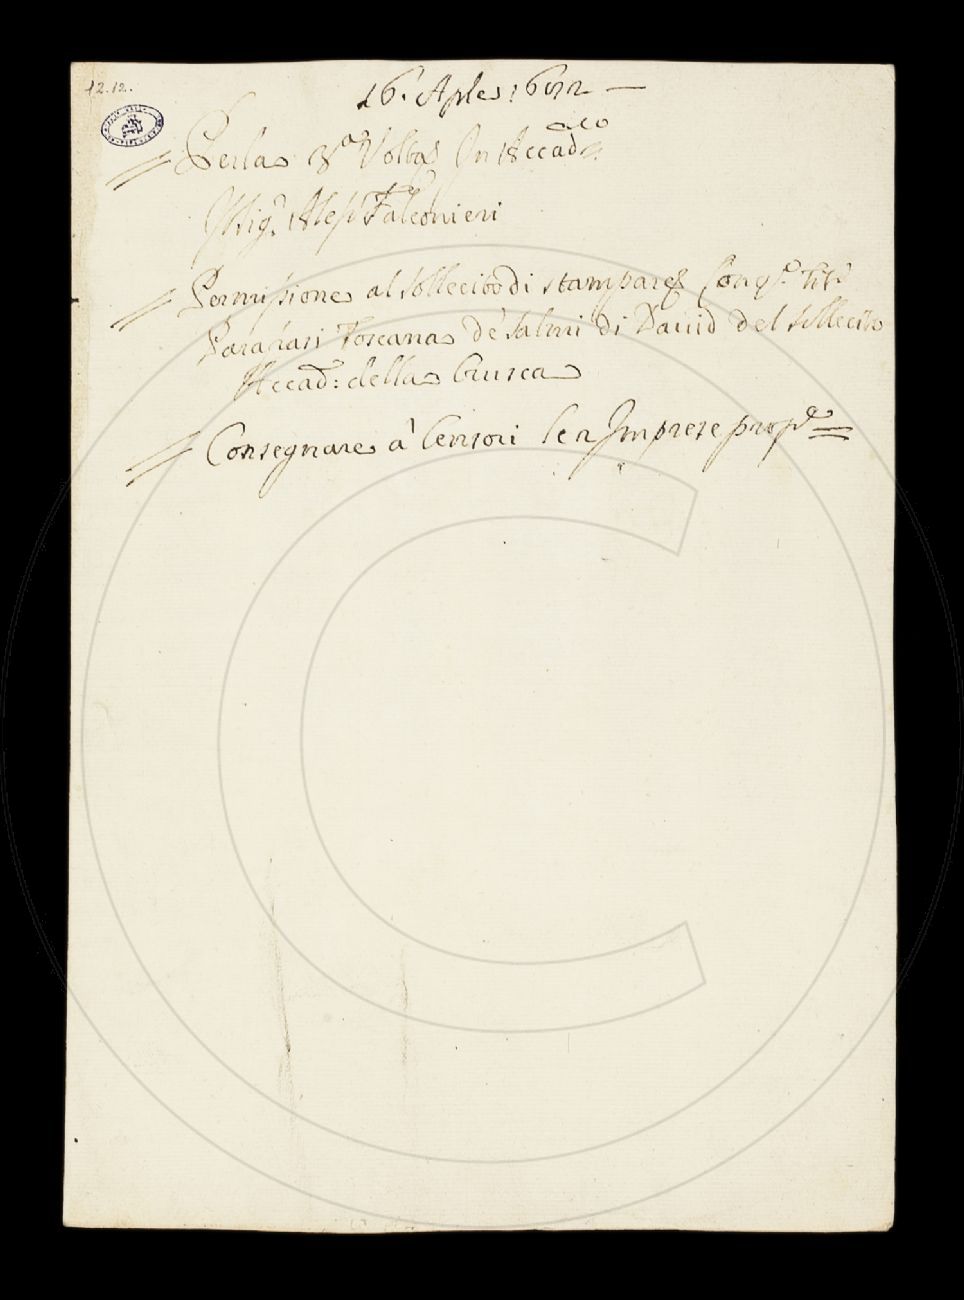 12.12.
16. Aple 1692
Per la 3.a Volta In Accad.co
Il Sig.r Aless.o Falconieri
Permissione al Sollecito di stampare Con q.o Tit.o
Parafrasi Toscana de Salmi di Dauid del Sollecito
Accad: della Crusca
Consegnare a' Censori le Imprese prop.e